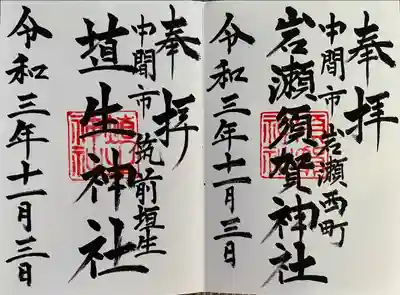 奉拝
中間市 岩瀬西町
岩瀬須賀神社
令和三年十一月三日
奉拝
中間市 筑前垣生
垣生神社
令和三年十一月三日